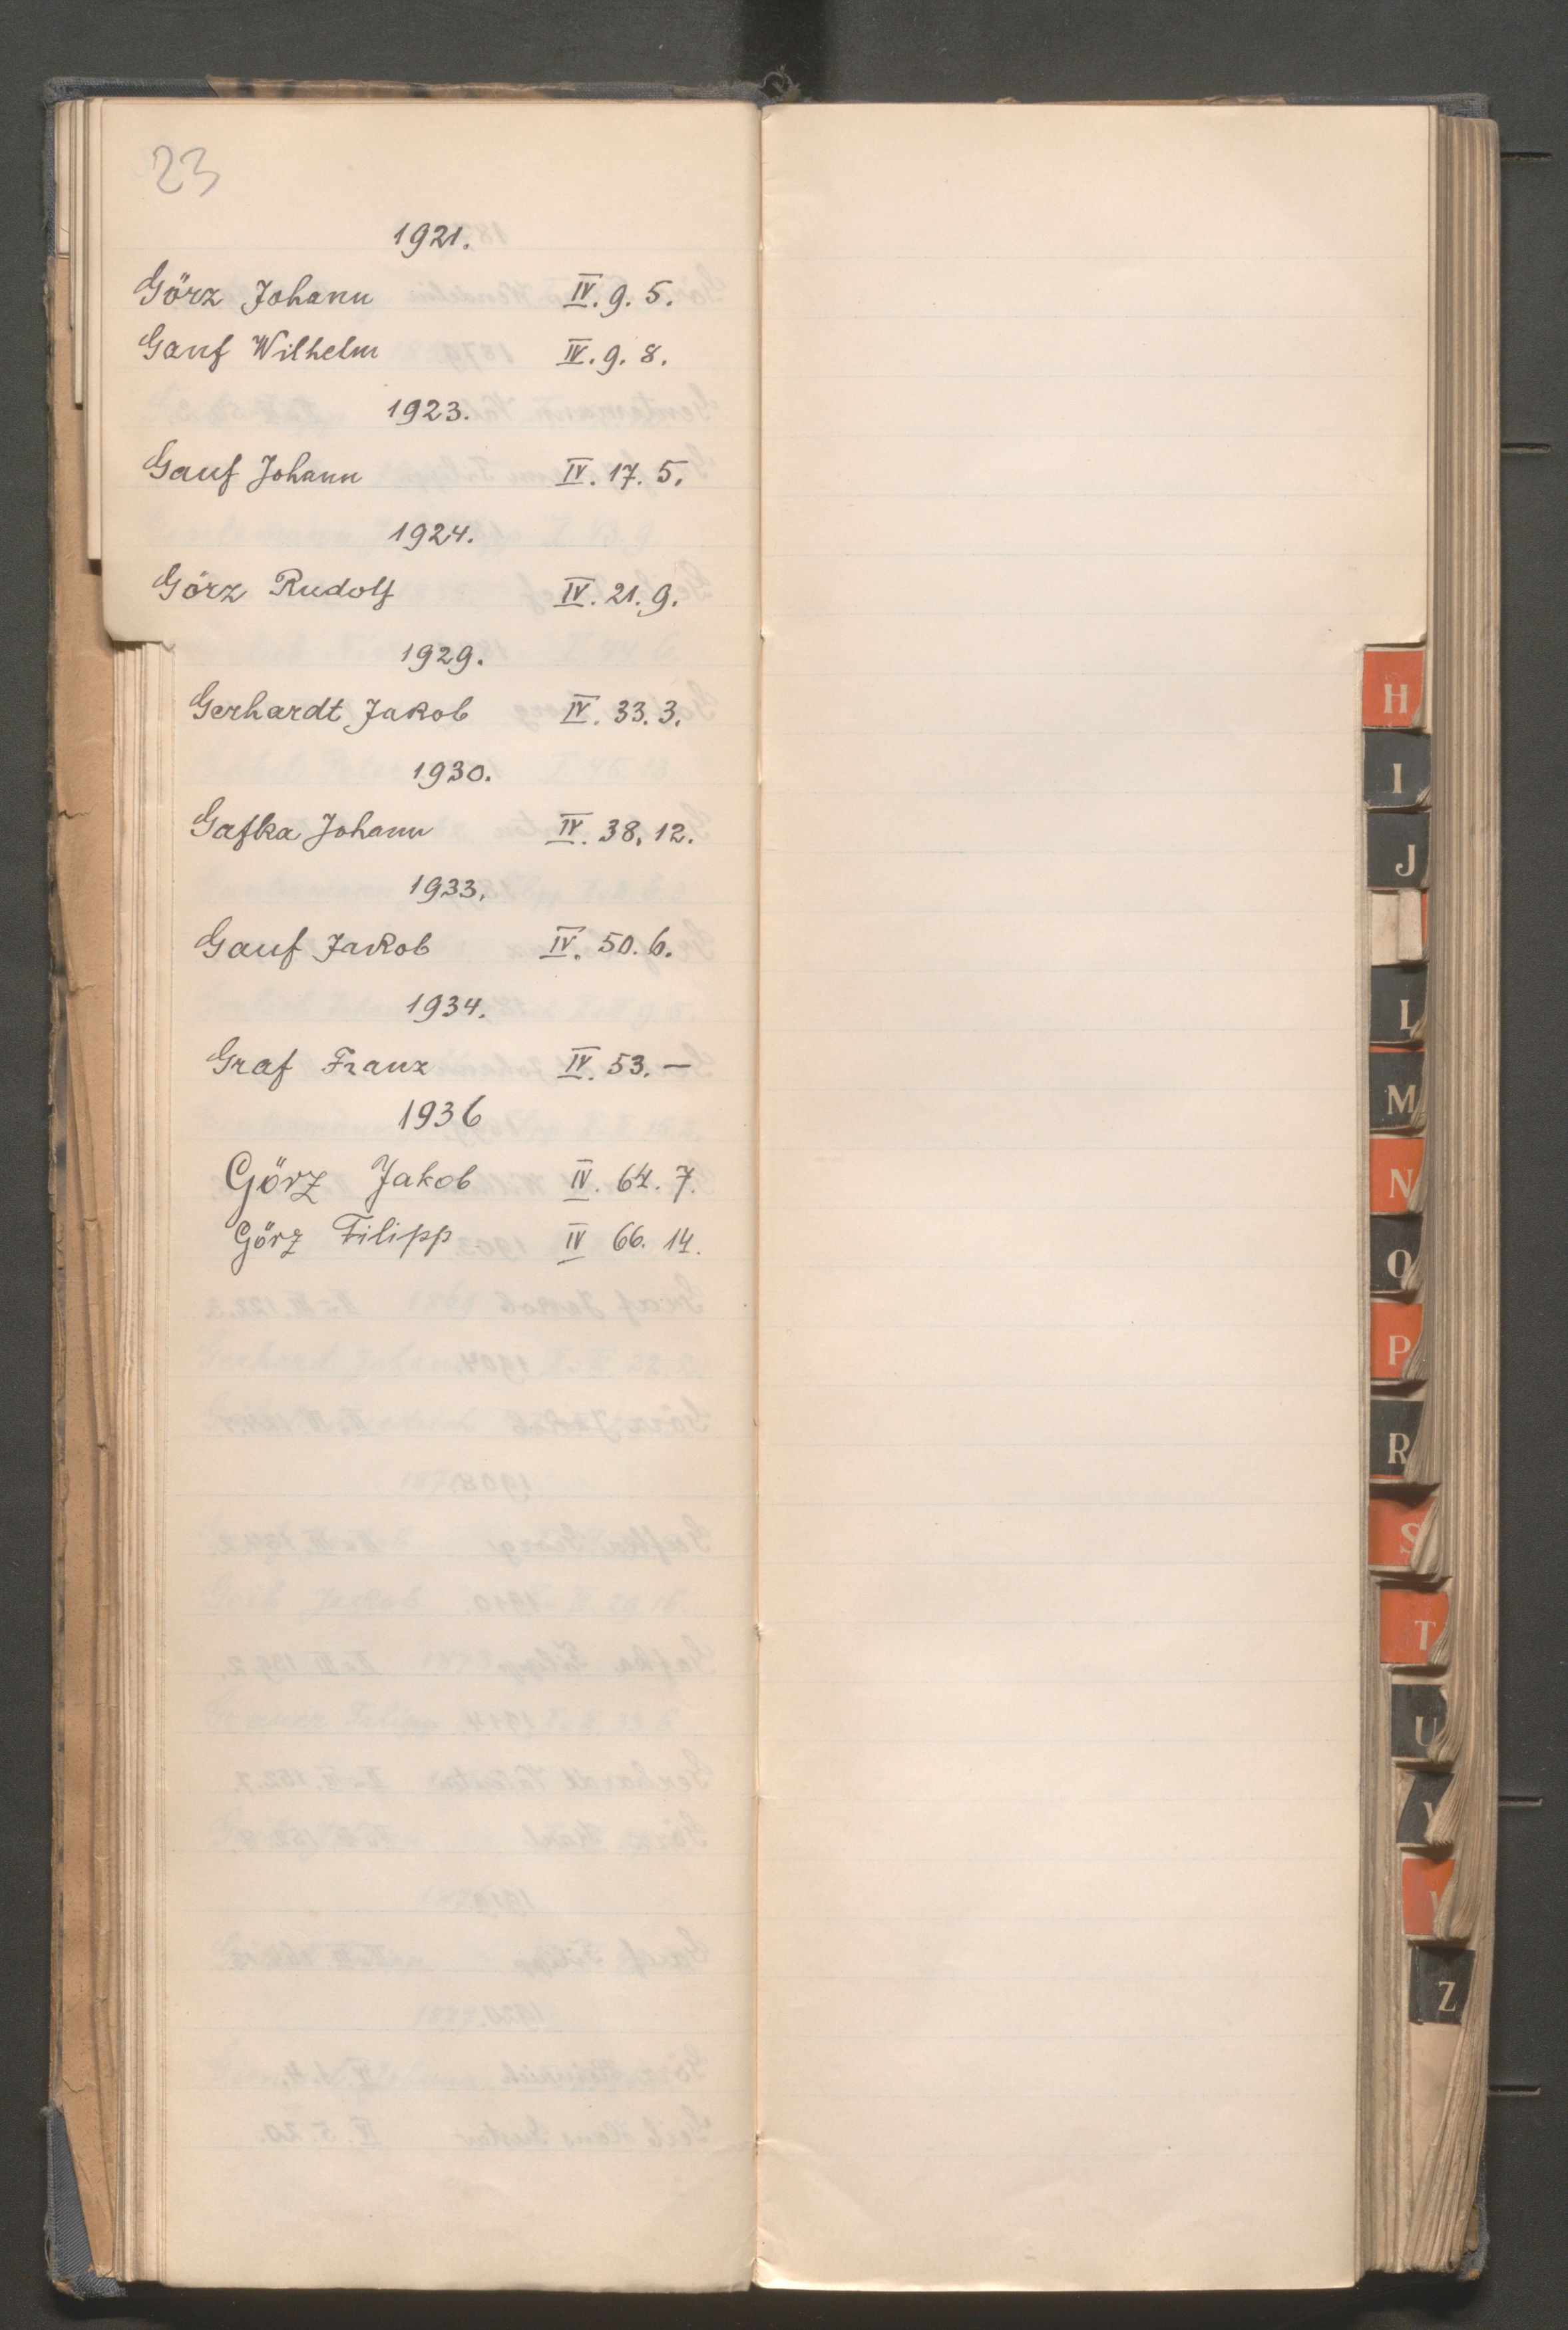 23
1921.
Görz Johann IV. 9. 5.
Gauf Wilhelm IV. 9. 8.
1923.
Gauf Johann IV. 17. 5.
1924.
Görz Rudolf IV. 21. 9.
1929.
Gerhardt Jakob IV. 33. 3.
1930.
Gafka Johann IV. 38. 12.
1933.
Gauf Jakob IV. 50. 6.
1934.
Graf Franz IV. 53. —
1936
Görz Jakob IV. 64. 7.
Görz Filipp IV 66. 14.
H
I
J
L
M
N
O
P
R
S
T
U
Z